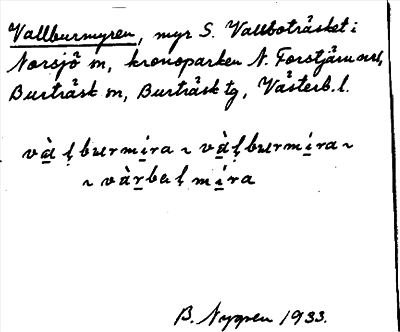 Vallburmyren, myr S. Vallboträsket i
Norsjö sn, kronoparken N. Forstjärn nr 1,
Burträsk sn, Burträsk tg, Västerb. l.
vàḷburmi̱ra ~ vàḷburmíra ~
~ vàrbaḷmíra
B. Nygren 1933.